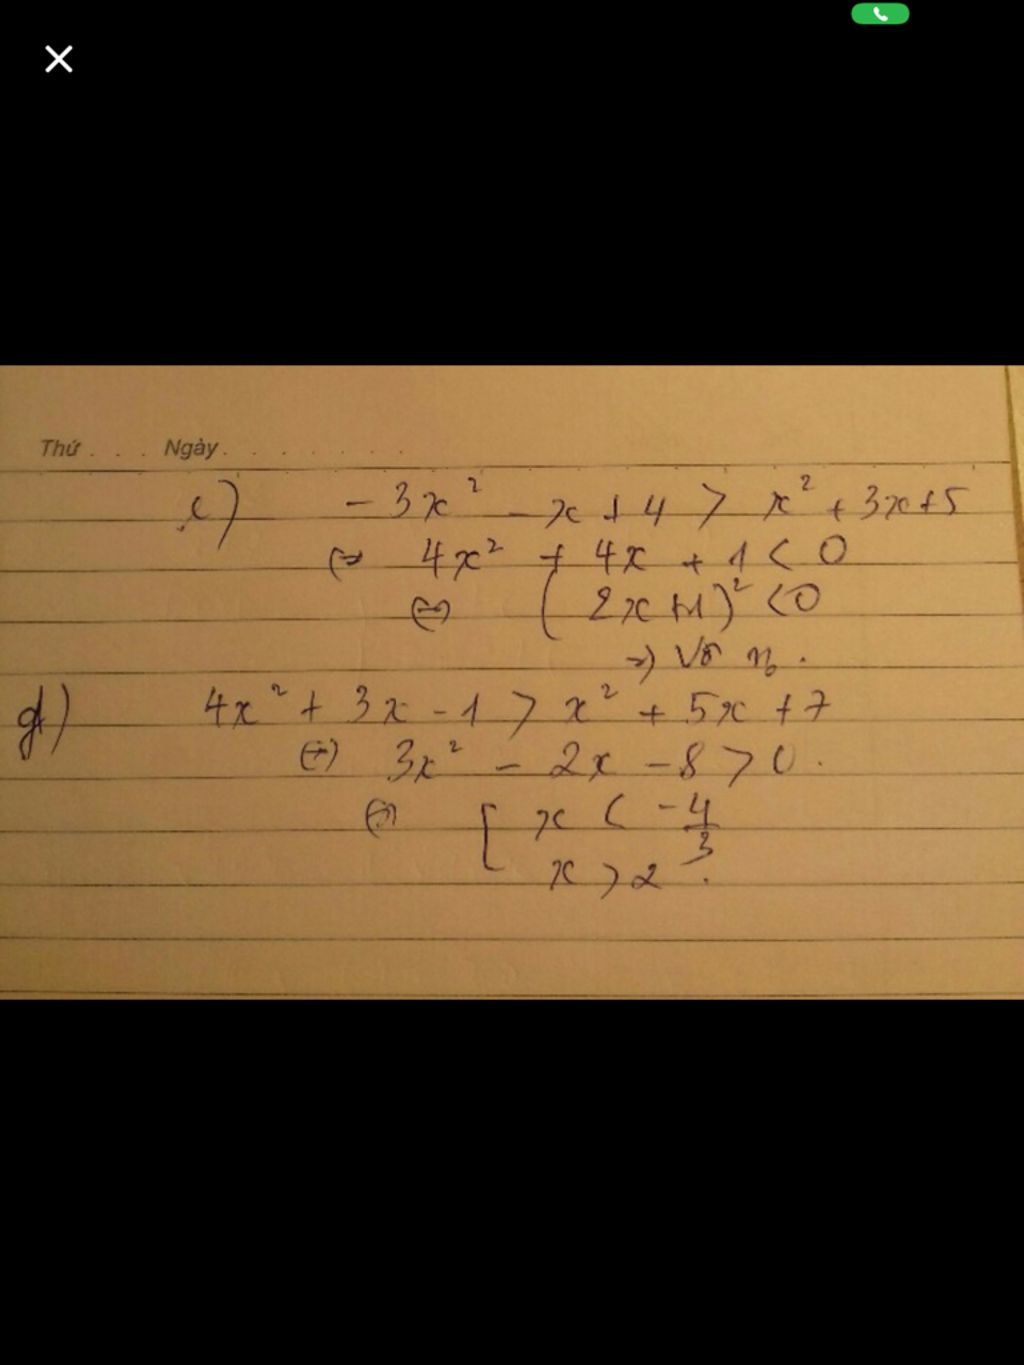 Thứ . . . Ngày . . . . . . . .
c) -3x² - x + 4 > x² + 3x + 5
⇔ 4x² + 4x + 1 < 0
⇔ (2x + 1)² < 0
⇒ Vô n₀.
d) 4x² + 3x - 1 > x² + 5x + 7
⇔ 3x² - 2x - 8 > 0.
⇔ [ x < -4/3
x > 2.